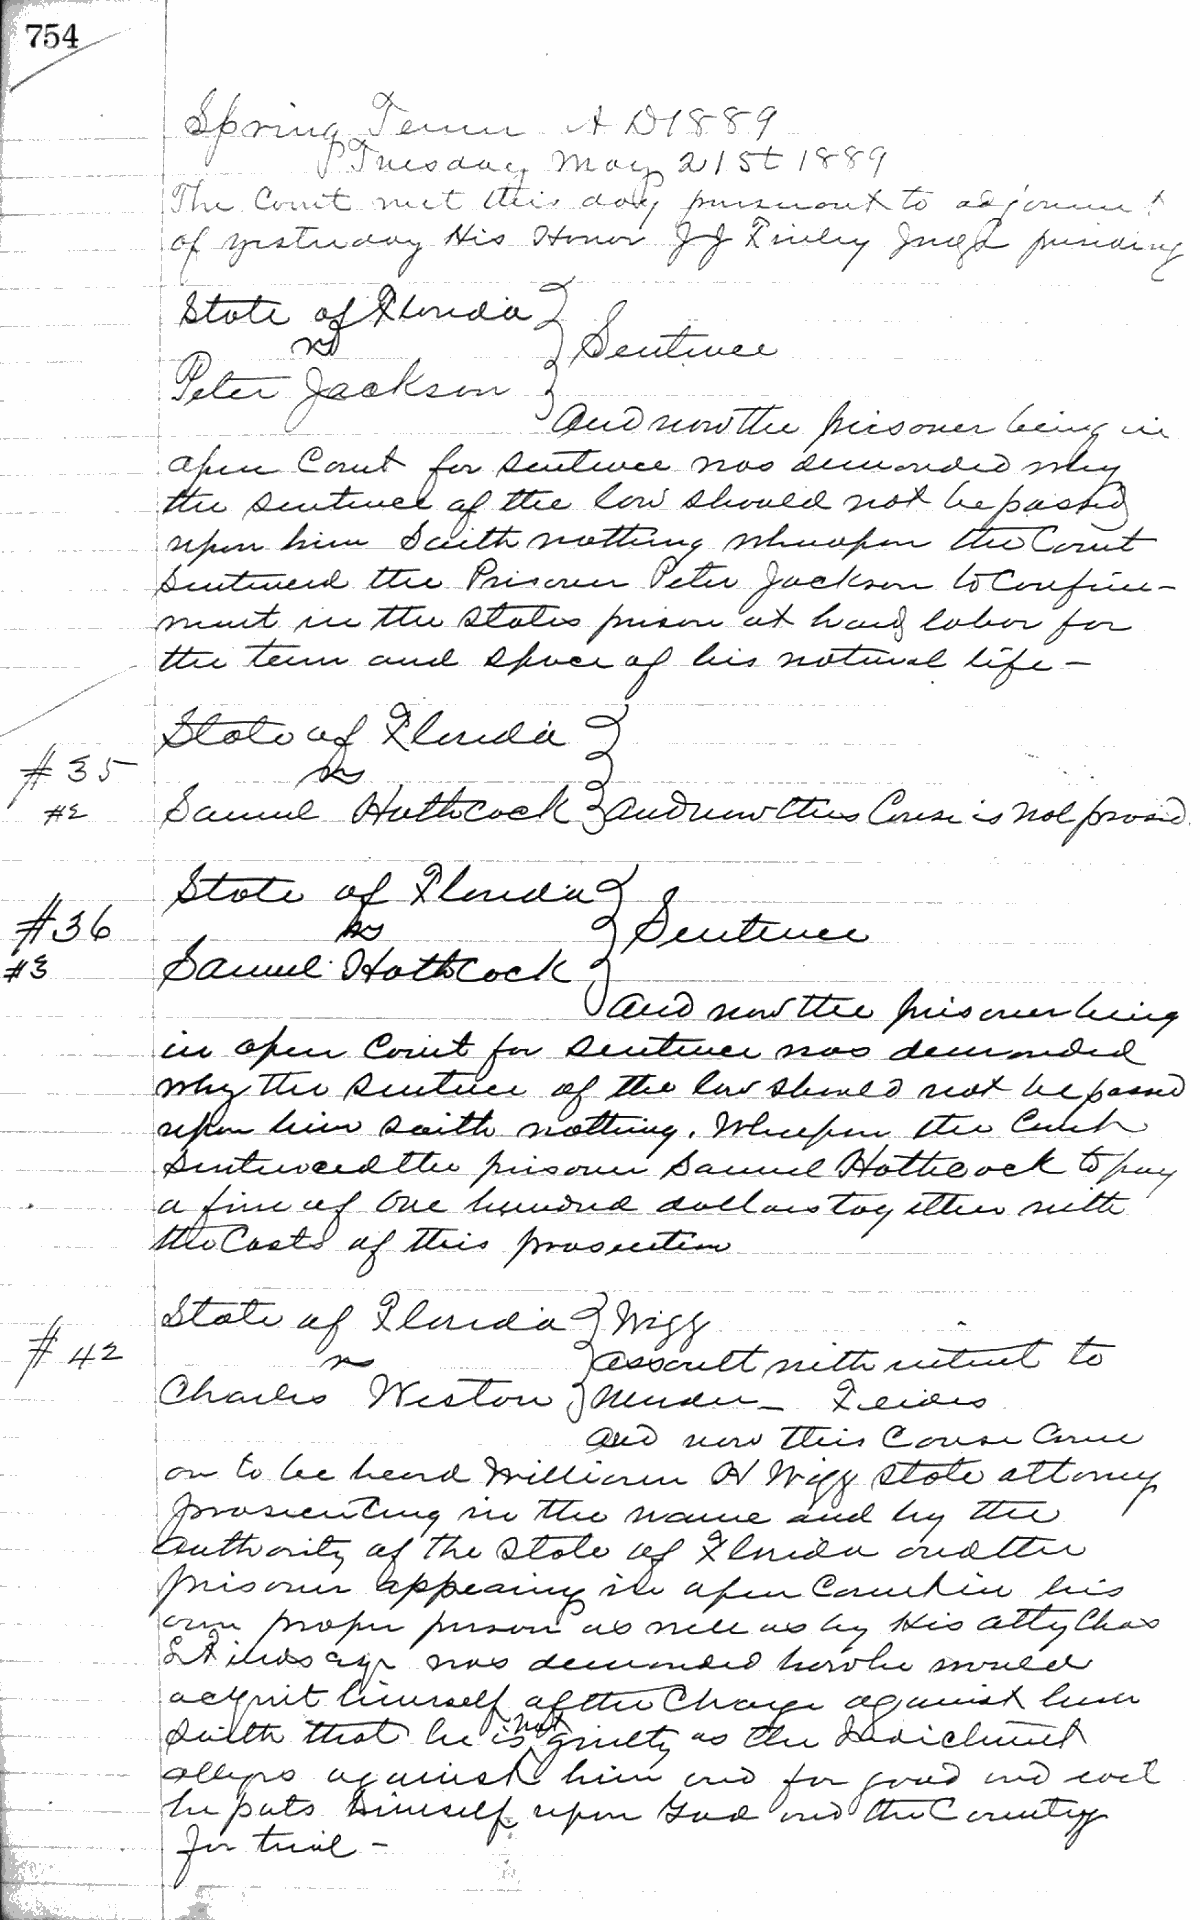 754
Spring Term A D 1889
Tuesday May 21st 1889
The Court met this day pursuant to adjournt
of yesterday His Honor J J Finley Judge presiding
State of Florida
vs
Sentence
Peter Jackson
And now the prisoner being in
open Court for sentence was demanded why
the sentence of the law should not be passed
upon him Saith nothing whereupon the Court
Sentenced the Prisoner Peter Jackson to Confine-
ment in the States prison at hard labor for
the term and space of his natural life -
State of Florida
#35
vs
#2
Samuel Hathcock And now this Cause is Nol prossed
State of Florida
#36
vs
Sentence
#3
Samuel Hathcock
And now the prisoner being
in open Court for sentence was demanded
why the sentence of the law should not be passed
upon him saith nothing. Whereupon the Court
Sentenced the prisoner Samuel Hathcock to pay
a fine of One hundred dollars together with
the Costs of this prosecution
State of Florida Wigg
#42
vs
assault with intent to
Charles Weston Murder -
And now this Cause Came
on to be heard William H Wigg State attorney
prosecuting in the name and by the
authority of the State of Florida and the
prisoner appearing in open Court in his
own proper person as well as by His atty Chas
was demanded how he would
acquit himself of the Charge against him
Saith that he is not guilty as the Indictment
alleges against him and for good and evil
he puts himself upon God and the Country
for trial -